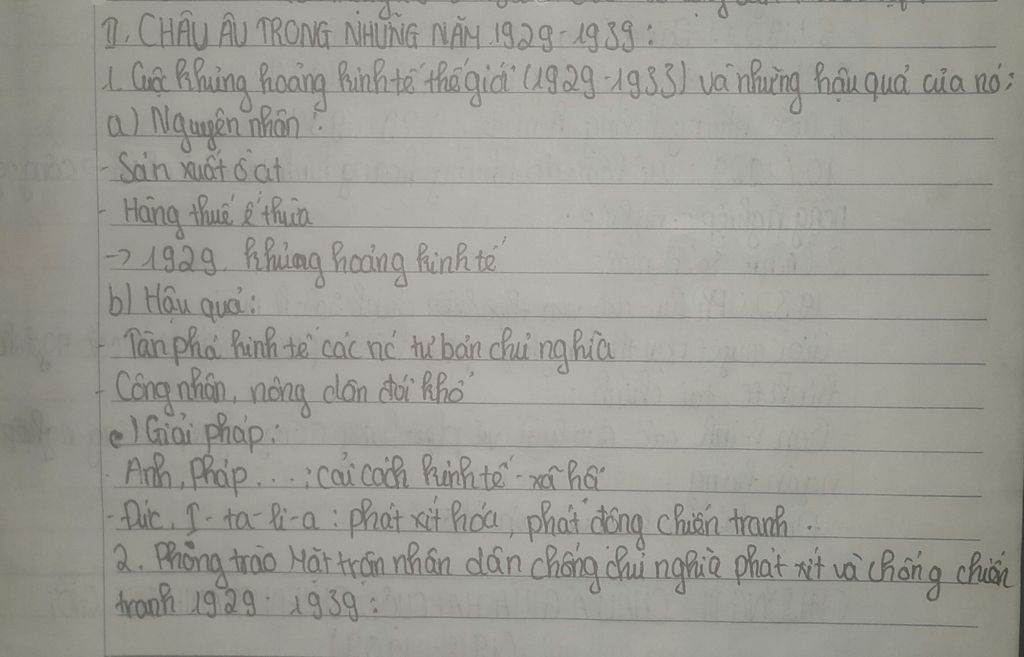 II. CHÂU ÂU TRONG NHỮNG NĂM 1929-1939:
1. Cuộc khủng hoảng kinh tế thế giới (1929-1933) và những hậu quả của nó:
a) Nguyên nhân:
- Sản xuất ồ ạt
- Hàng thuế ế thừa
-> 1929, khủng hoảng kinh tế
b) Hậu quả:
- Tàn phá kinh tế các nc tư bản chủ nghĩa
- Công nhân, nông dân đói khổ
c) Giải pháp:
- Anh, Pháp...: cải cách kinh tế - xã hội
- Đức, I-ta-li-a: phát xít hóa, phát động chiến tranh.
2. Phong trào Mặt trận nhân dân chống chủ nghĩa phát xít và chống chiến
tranh 1929-1939: